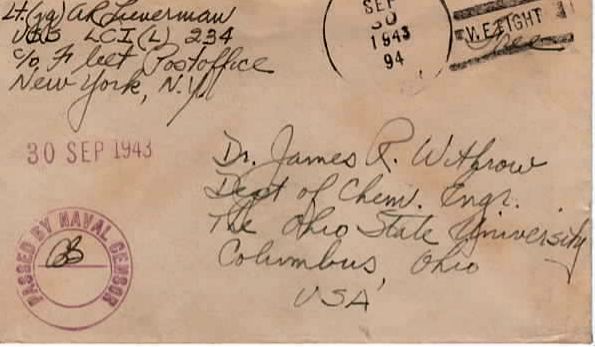 Lt.(jg) A R Lieverman
USS LCI(L) 234
c/o Fleet Postoffice
New York, N.Y.
SEP
30
1943
94
V.. EIGHT
Free
30 SEP 1943
PASSED BY NAVAL CENSOR
Dr. James R. Withrow
Dept of Chem. Engr.
The Ohio State University
Columbus, Ohio
USA